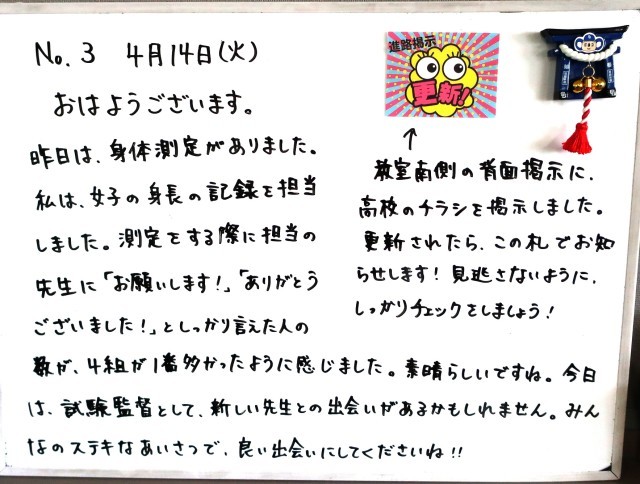 No.3 4月14日(火)
おはようございます。
昨日は、身体測定がありました。
私は、女子の身長の記録を担当
しました。測定をする際に担当の
先生に「お願いします!」「ありがとう
ございました!」としっかり言えた人の
数が、4組が1番多かったように感じました。素晴らしいですね。今日
は、試験監督として、新しい先生との出会いがあるかもしれません。みん
なのステキなあいさつで、良い出会いにしてくださいね!!
進路掲示
更新!
教室南側の背面掲示に、
高校のチラシを掲示しました。
更新されたら、この札でお知
らせします!見逃さないように、
しっかりチェックをしましょう!